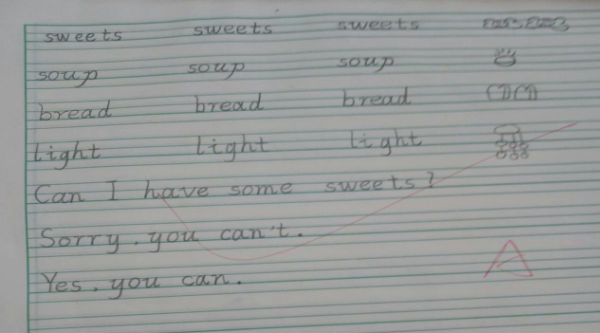 sweets sweets sweets
soup soup soup
bread bread bread
light light light
Can I have some sweets?
Sorry, you can't.
Yes, you can.
A